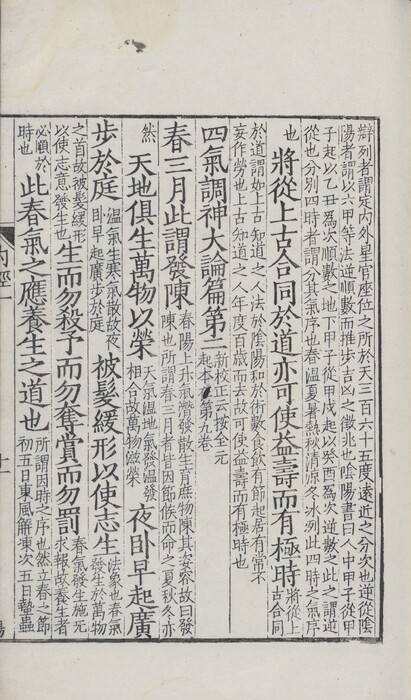 辯列者謂定內外星官座位之所於天三百六十五度遠近之分次也逆從陰
陽者謂以六甲等法逆順數而推步吉凶之徵兆也陰陽書曰人中甲子從甲
子起以乙丑為次順數之地下甲子從甲戌起以癸酉為次逆數之此之謂逆
從也分別四時者謂分其氣序也春溫夏暑熱秋清涼冬冰冽此四時之氣序
也將從上古合同於道亦可使益壽而有極時將從上古合同
於道謂如上古知道之人法於陰陽和於術數食飲有節起居有常不
妄作勞也上古知道之人年度百歲而去故可使益壽而有極時也
四氣調神大論篇第二新校正云按全元起本在第九卷
春三月此謂發陳春陽上升氣潛發散生育庶物陳其姿容故曰發陳也所謂春三月者皆因節候而命之夏秋冬亦
然天地俱生萬物以榮天氣溫地氣發溫發相合故萬物滋榮夜臥早起廣
步於庭溫氣生寒氣散故夜臥早起廣步於庭被髮緩形以使志生法象也春氣發生於萬物
之首故被髮緩形以使志意發生也生而勿殺予而勿奪賞而勿罰春氣發生施无求報故養生者
必順於時也此春氣之應養生之道也所謂因時之序也然立春之節初五日東風解凍次五日蟄蟲